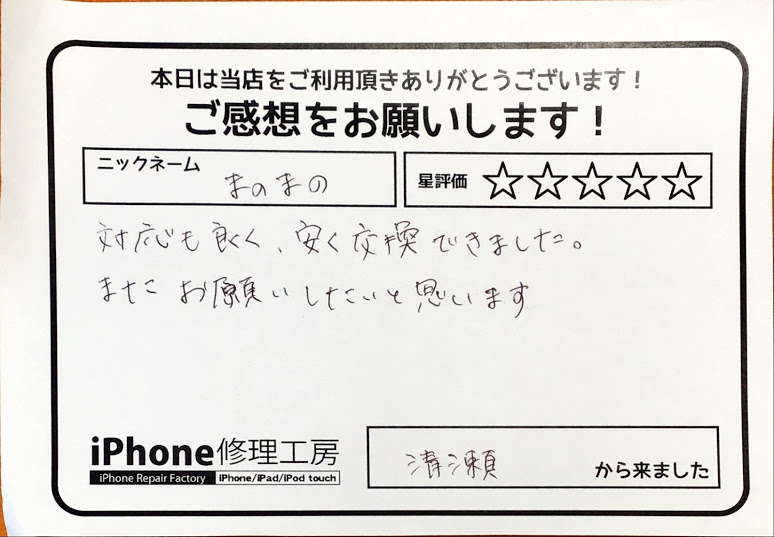 本日は当店をご利用頂きありがとうございます!
ご感想をお願いします!
ニックネーム まのまの
星評価 ☆☆☆☆☆
対応も良く、安く交換できました。
またお願いしたいと思います
iPhone修理工房
iPhone Repair Factory iPhone/iPad/iPod touch
清瀬 から来ました